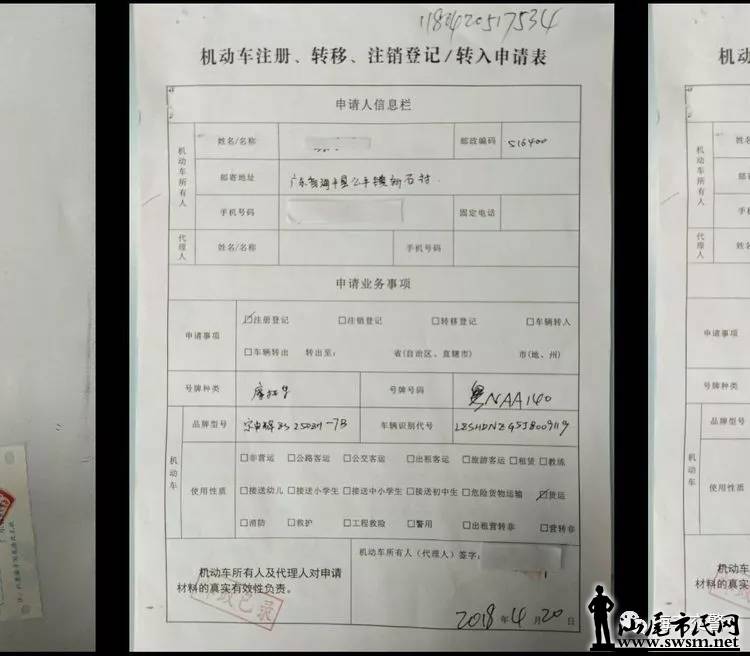 118420517534
机动车注册、转移、注销登记/转入申请表
申请人信息栏
机动车所有人
姓名/名称
邮政编码 516400
邮寄地址 广东省海丰县公平镇新石村
手机号码
固定电话
代理人 姓名/名称 手机号码
申请业务事项
申请事项
☑注册登记 □注销登记 □转移登记 □车辆转入
□车辆转出 转出至: 省(自治区、直辖市) 市(地、州)
号牌种类 摩托车 号牌号码 粤NAA140
机动车
品牌型号 宗申牌ZS250ZH-7B 车辆识别代号
使用性质
□非营运 □公路客运 □公交客运 □出租客运 □旅游客运 □租赁 □教练
□接送幼儿 □接送小学生 □接送中小学生 □接送初中生 □危险货物运输 ☑货运
□消防 □救护 □工程救险 □警用 □出租营转非 □营转非
机动车所有人及代理人对申请
材料的真实有效性负责。
机动车所有人(代理人)签字:
2018 年 4 月 20 日
汕尾市民网
www.swsm.net